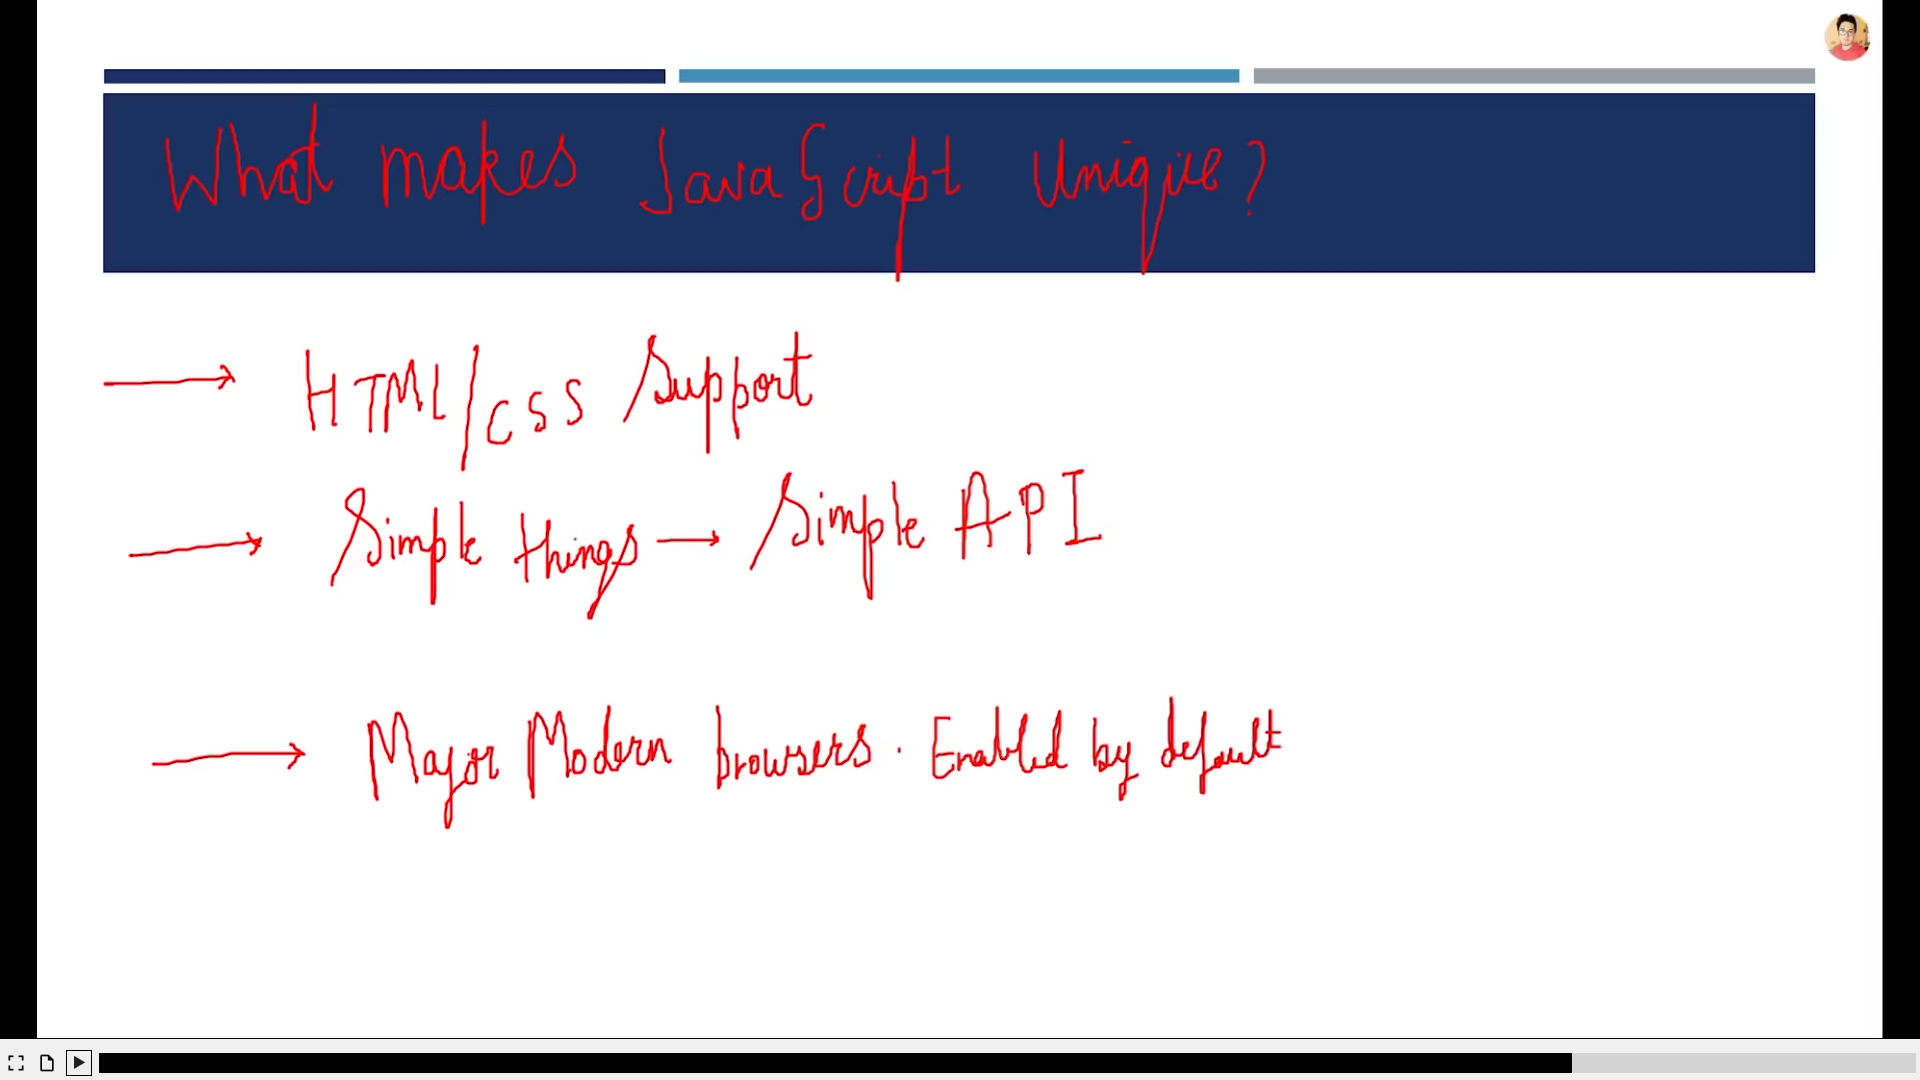 What makes JavaScript Unique?
→ HTML/CSS Support
→ Simple things → Simple API
→ Major Modern browsers. Enabled by default